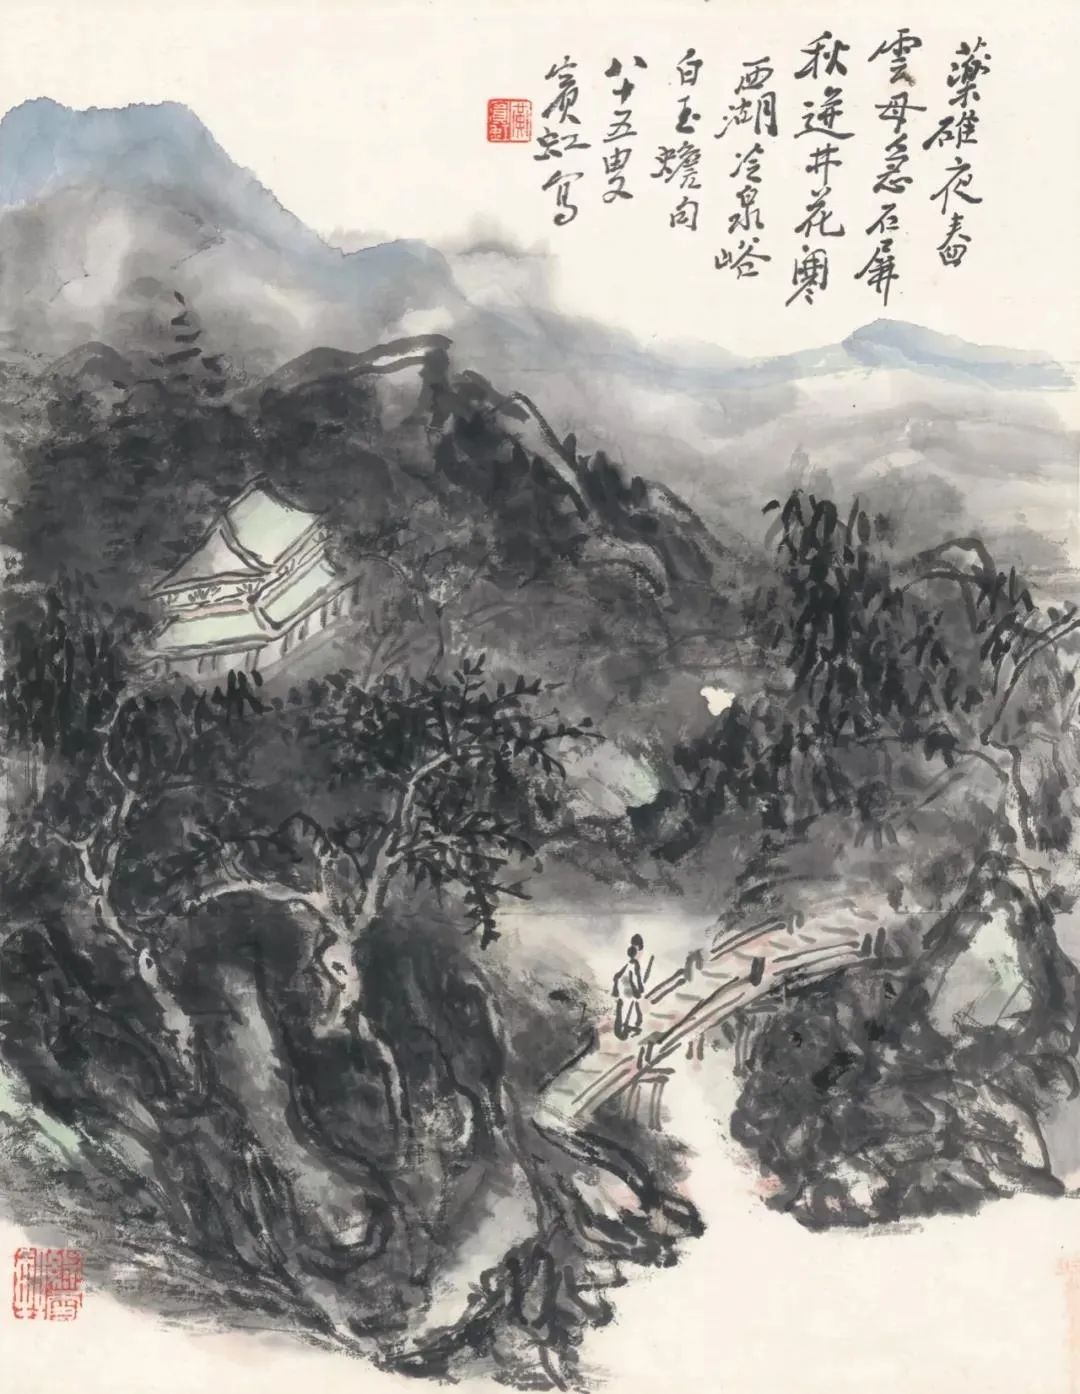 藥碓夜舂
雲母急石屏
秋逬井花寒
西湖冷泉峪
白玉蟾句
八十五叟
賓虹寫
黃賓虹